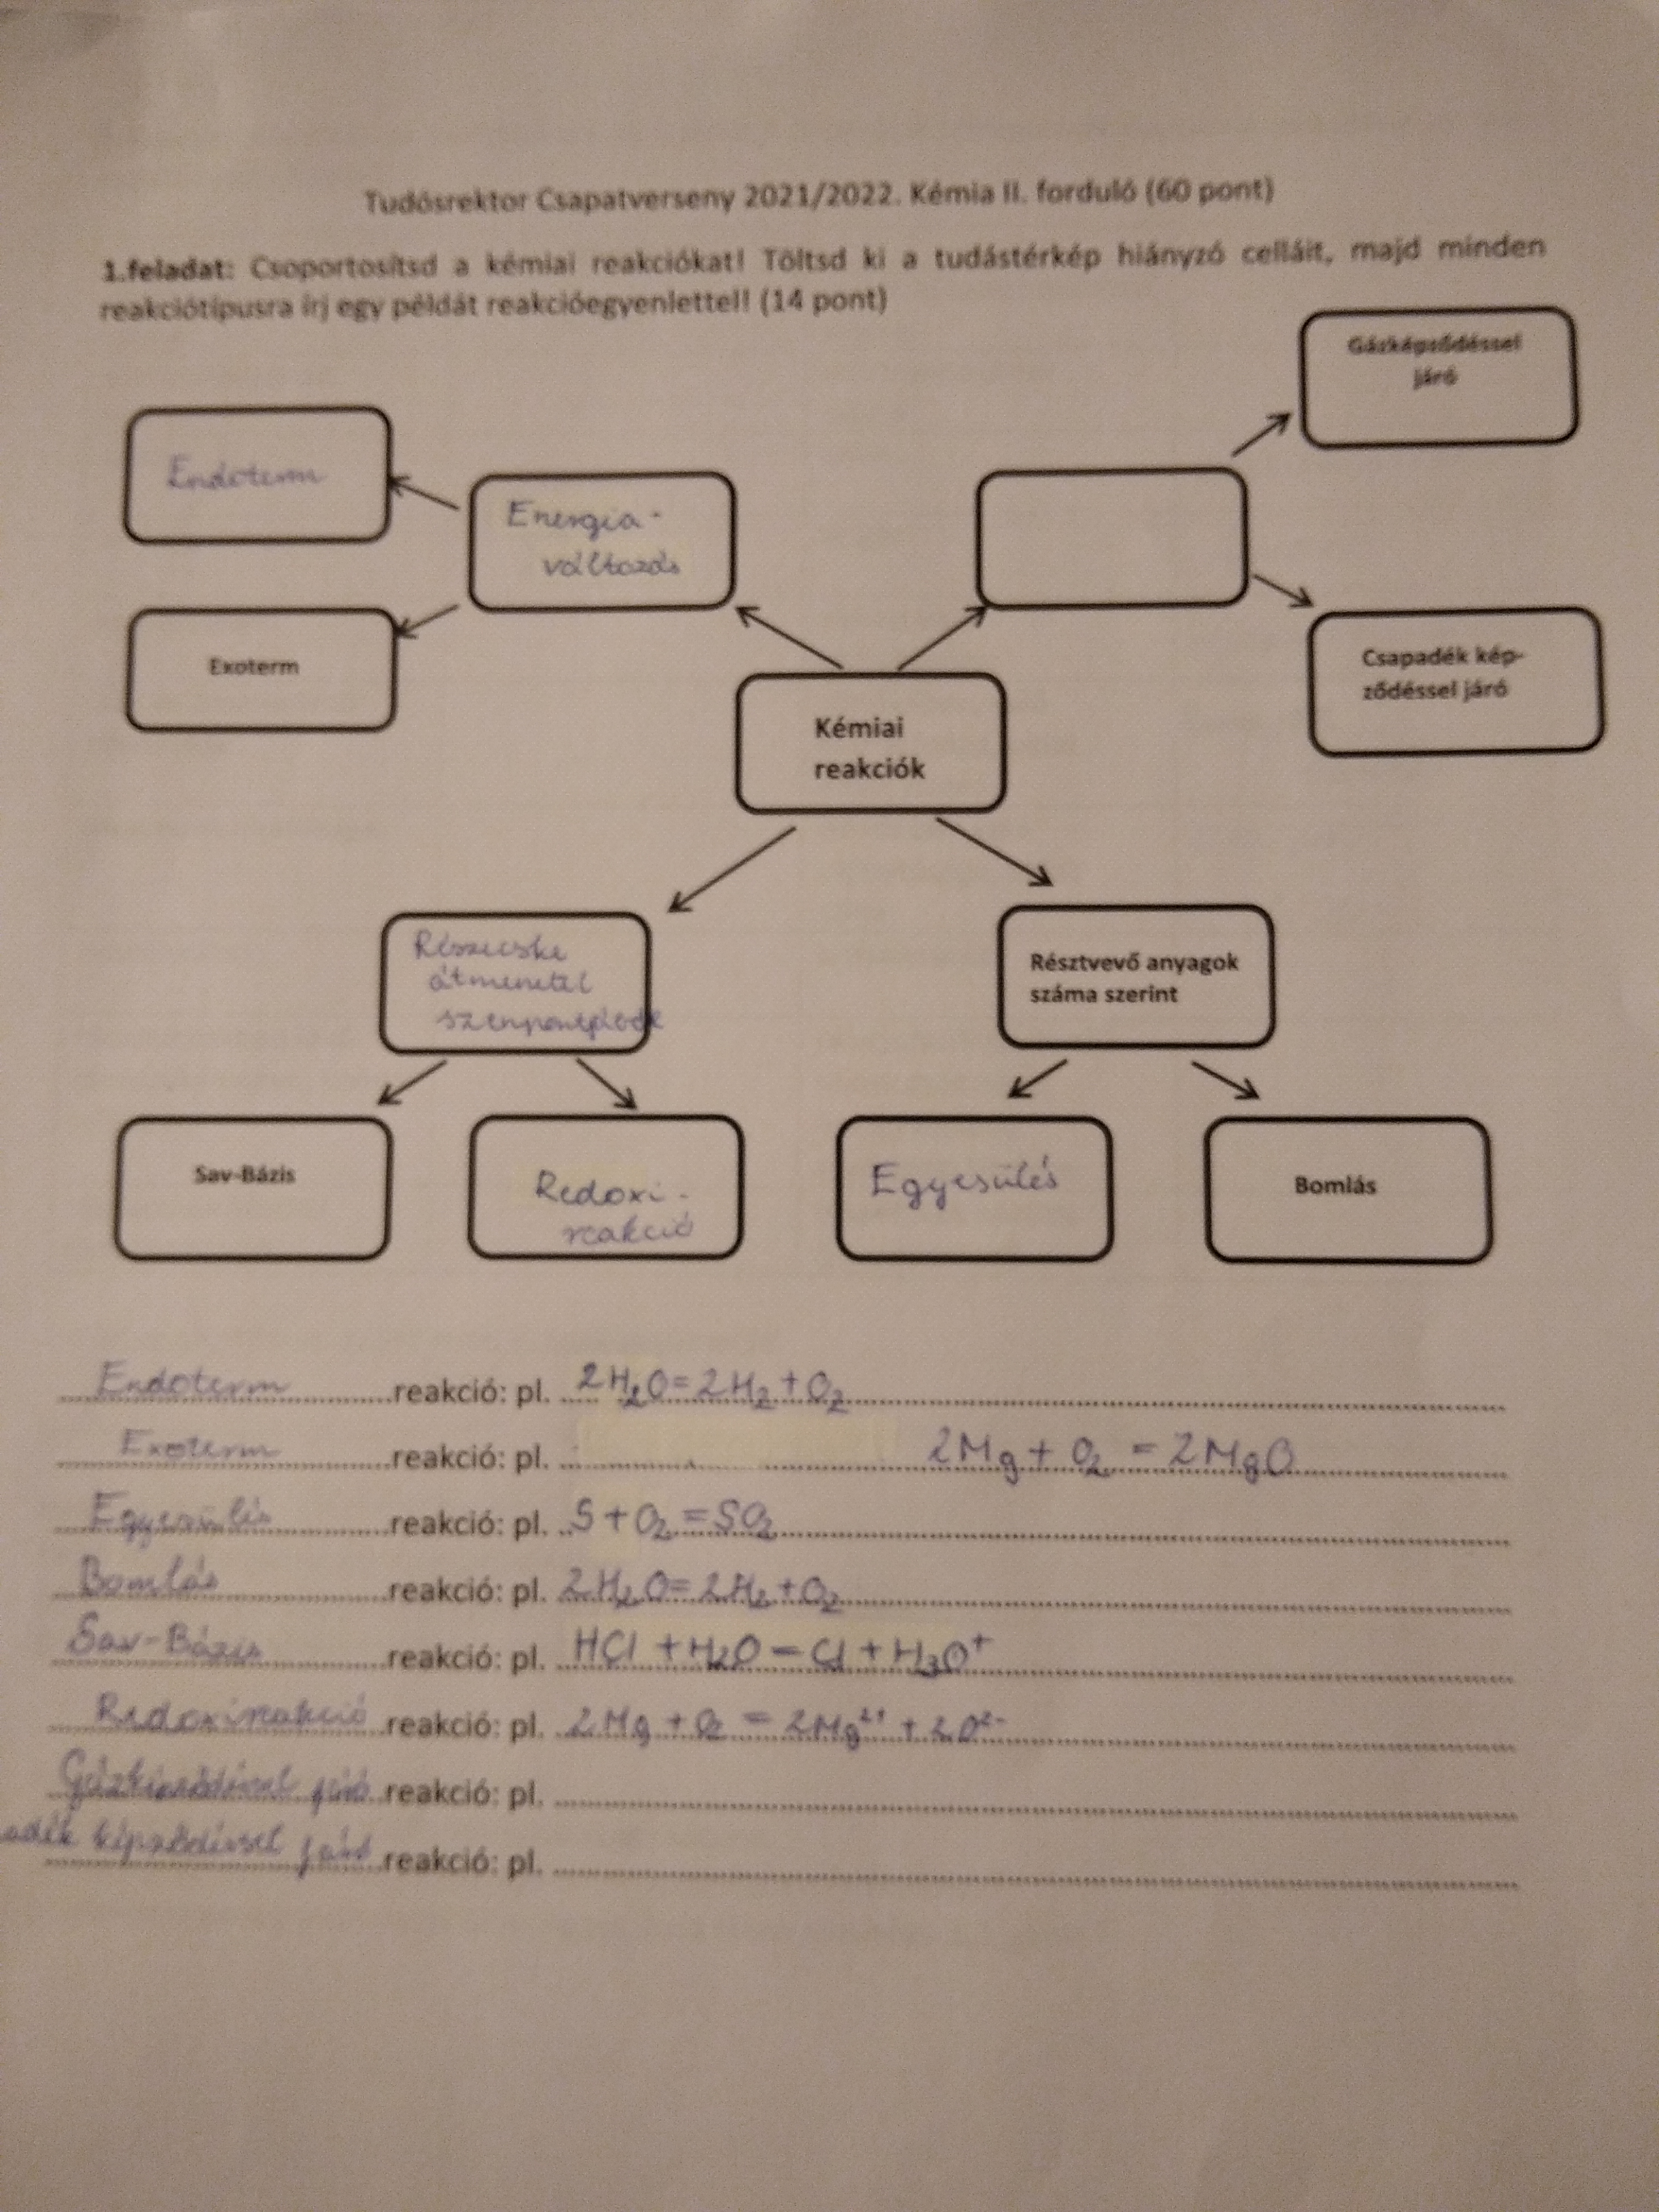 Tudósrektor Csapatverseny 2021/2022. Kémia II. forduló (60 pont)
1.feladat: Csoportosítsd a kémiai reakciókat! Töltsd ki a tudástérkép hiányzó celláit, majd minden
reakciótípusra írj egy példát reakcióegyenlettel! (14 pont)
Gázképződéssel
járó
Endoterm
Energia-
változás
Exoterm
Csapadék kép-
ződéssel járó
Kémiai
reakciók
Részecske
átmenetel
Résztvevő anyagok
száma szerint
Sav-Bázis
Redoxi-
reakció
Egyesülés
Bomlás
Endoterm reakció: pl. 2H₂O=2H₂+O₂
Exoterm reakció: pl. 2Mg + O₂ = 2MgO
Egyesülés reakció: pl. S+O₂=SO₂
Bomlás reakció: pl. 2H₂O=2H₂+O₂
Sav-Bázis reakció: pl. HCl + H₂O = Cl + H₃O⁺
Redoxireakció reakció: pl. 2Mg + O₂ = 2Mg²⁺ + 2O²⁻
Gázképződéssel járó reakció: pl.
adék képződéssel járó reakció: pl.